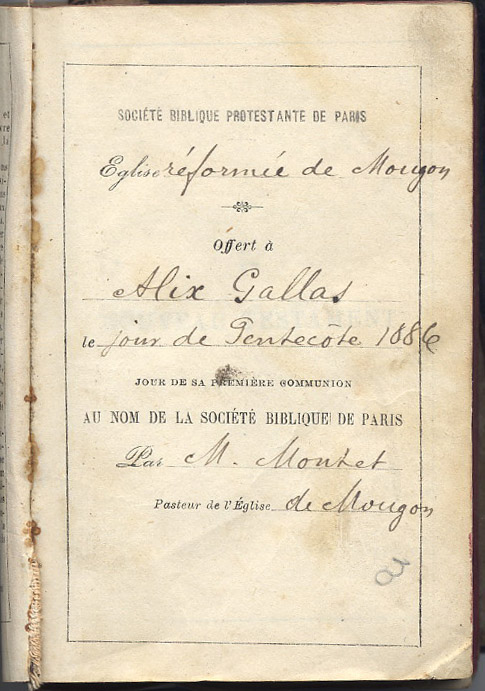 SOCIÉTÉ BIBLIQUE PROTESTANTE DE PARIS
Eglise réformée de Mougon
Offert à
Alix Gallas
le jour de Pentecôte 1886
JOUR DE SA PREMIÈRE COMMUNION
AU NOM DE LA SOCIÉTÉ BIBLIQUE DE PARIS
Par M. Montet
Pasteur de l'Église de Mougon